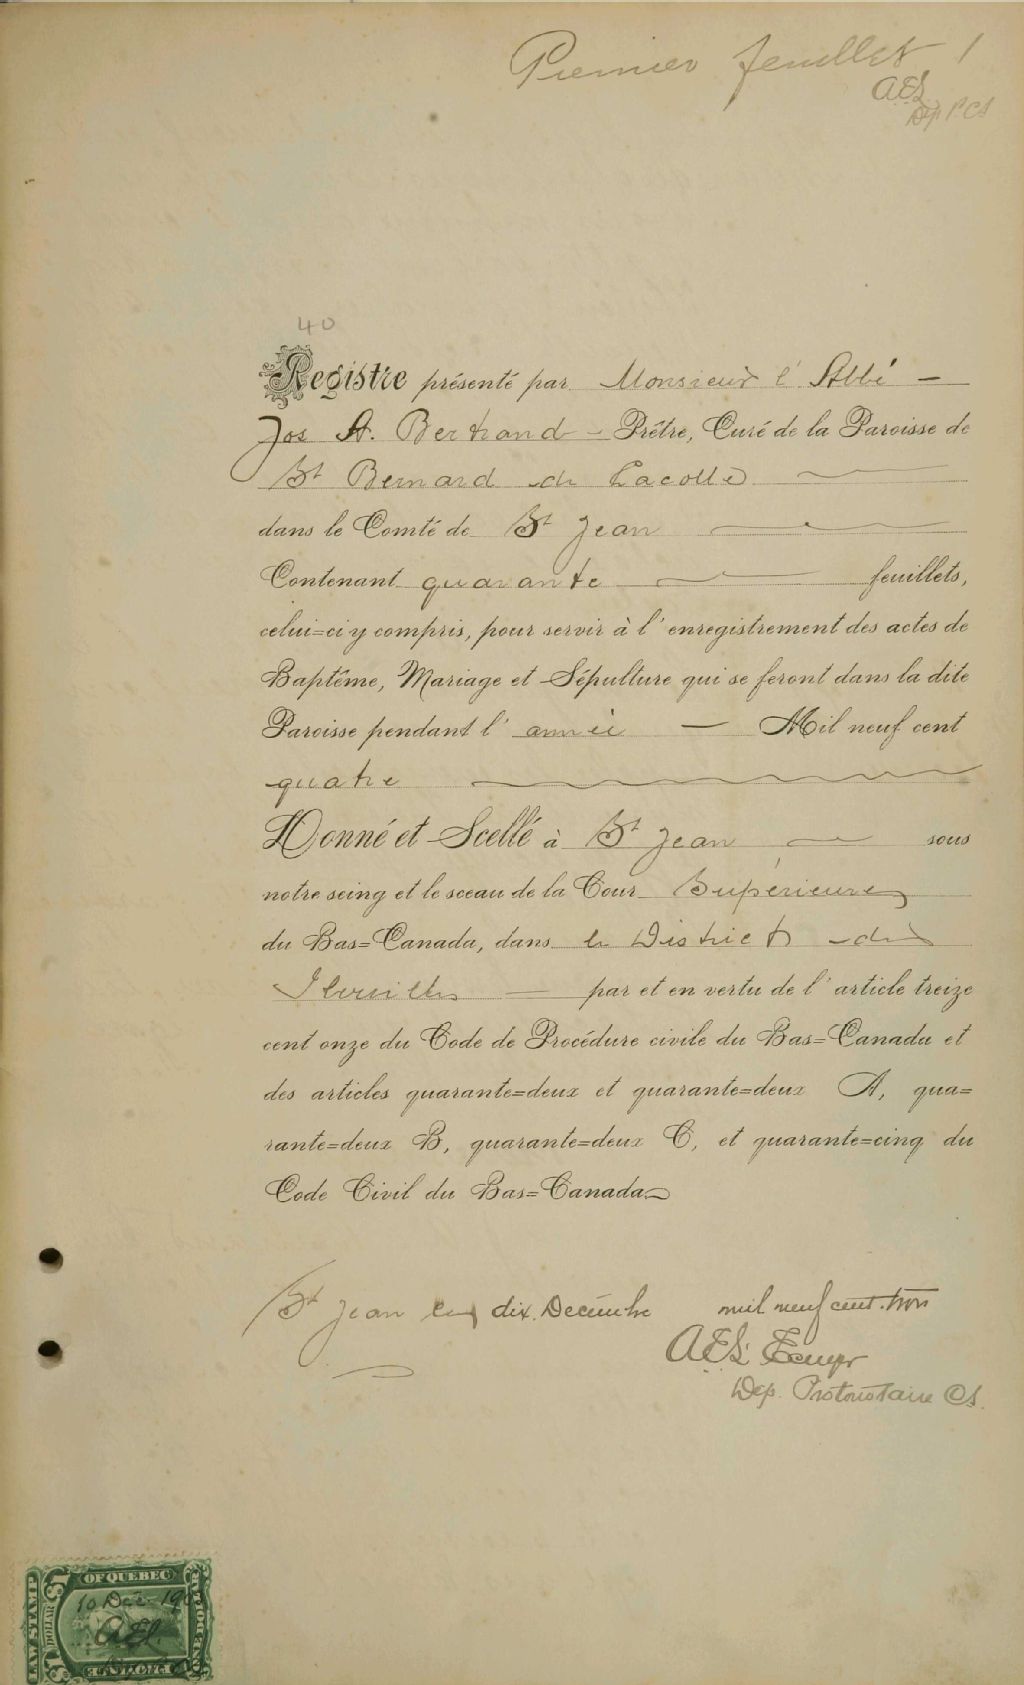 Premier feuillet 1
AEL
Dep P C S
40
Registre présenté par Monsieur l'Abbé —
Jos A. Bertrand — Prêtre, Curé de la Paroisse de
St Bernard de Lacolle
dans le Comté de St Jean
Contenant quarante feuillets,
celui=ci y compris, pour servir à l'enregistrement des actes de
Baptême, Mariage et Sépulture qui se feront dans la dite
Paroisse pendant l'année — Mil neuf cent
quatre
Donné et Scellé à St Jean — sous
notre seing et le sceau de la Cour Supérieure
du Bas=Canada, dans le District de
Iberville — par et en vertu de l'article treize
cent onze du Code de Procédure civile du Bas=Canada et
des articles quarante=deux et quarante=deux A, qua=
rante=deux B, quarante=deux C, et quarante=cinq du
Code Civil du Bas=Canada
St Jean ce dix Decembre mil neuf cent trois
Dep. Protonotaire C S.
PROVINCE OF QUEBEC
LAW STAMP
$1 DOLLAR $1
ONE DOLLAR
10 Dec 190
AEL